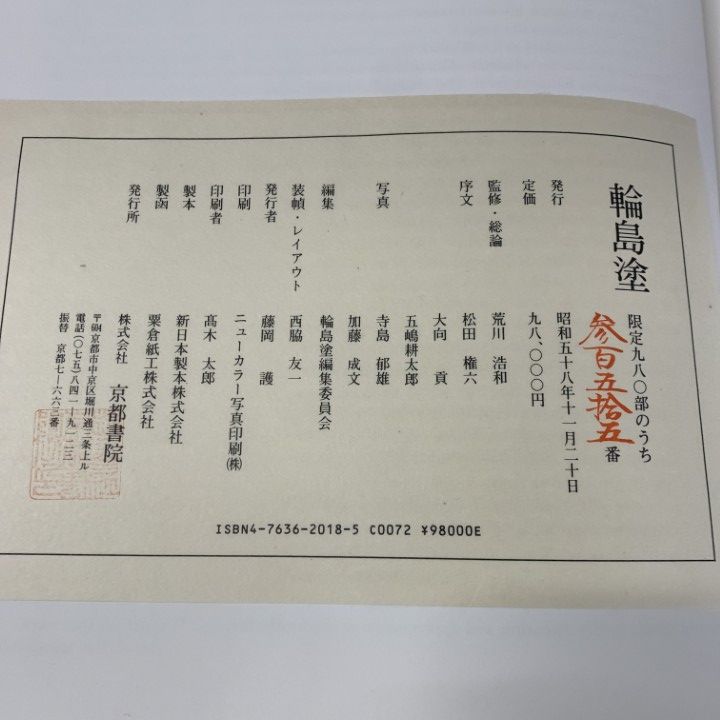 輪島塗
限定九八〇部のうち
参百五拾五番
発行 昭和五十八年十一月二十日
定価 九八、〇〇〇円
監修・総論 荒川 浩和
序文 松田 権六
写真 大向 貢
五嶋耕太郎
寺島 郁雄
加藤 成文
編集 輪島塗編集委員会
装幀・レイアウト 西脇 友一
発行者 藤岡 護
印刷 ニューカラー写真印刷㈱
印刷者 髙木 太郎
製本 新日本製本株式会社
製函 栗倉紙工株式会社
発行所 株式会社 京都書院
〒604京都市中京区堀川通三条上ル
電話(〇七五)八四一-九一二三
振替 京都七-六六三番
ISBN4-7636-2018-5 C0072 ¥98000E